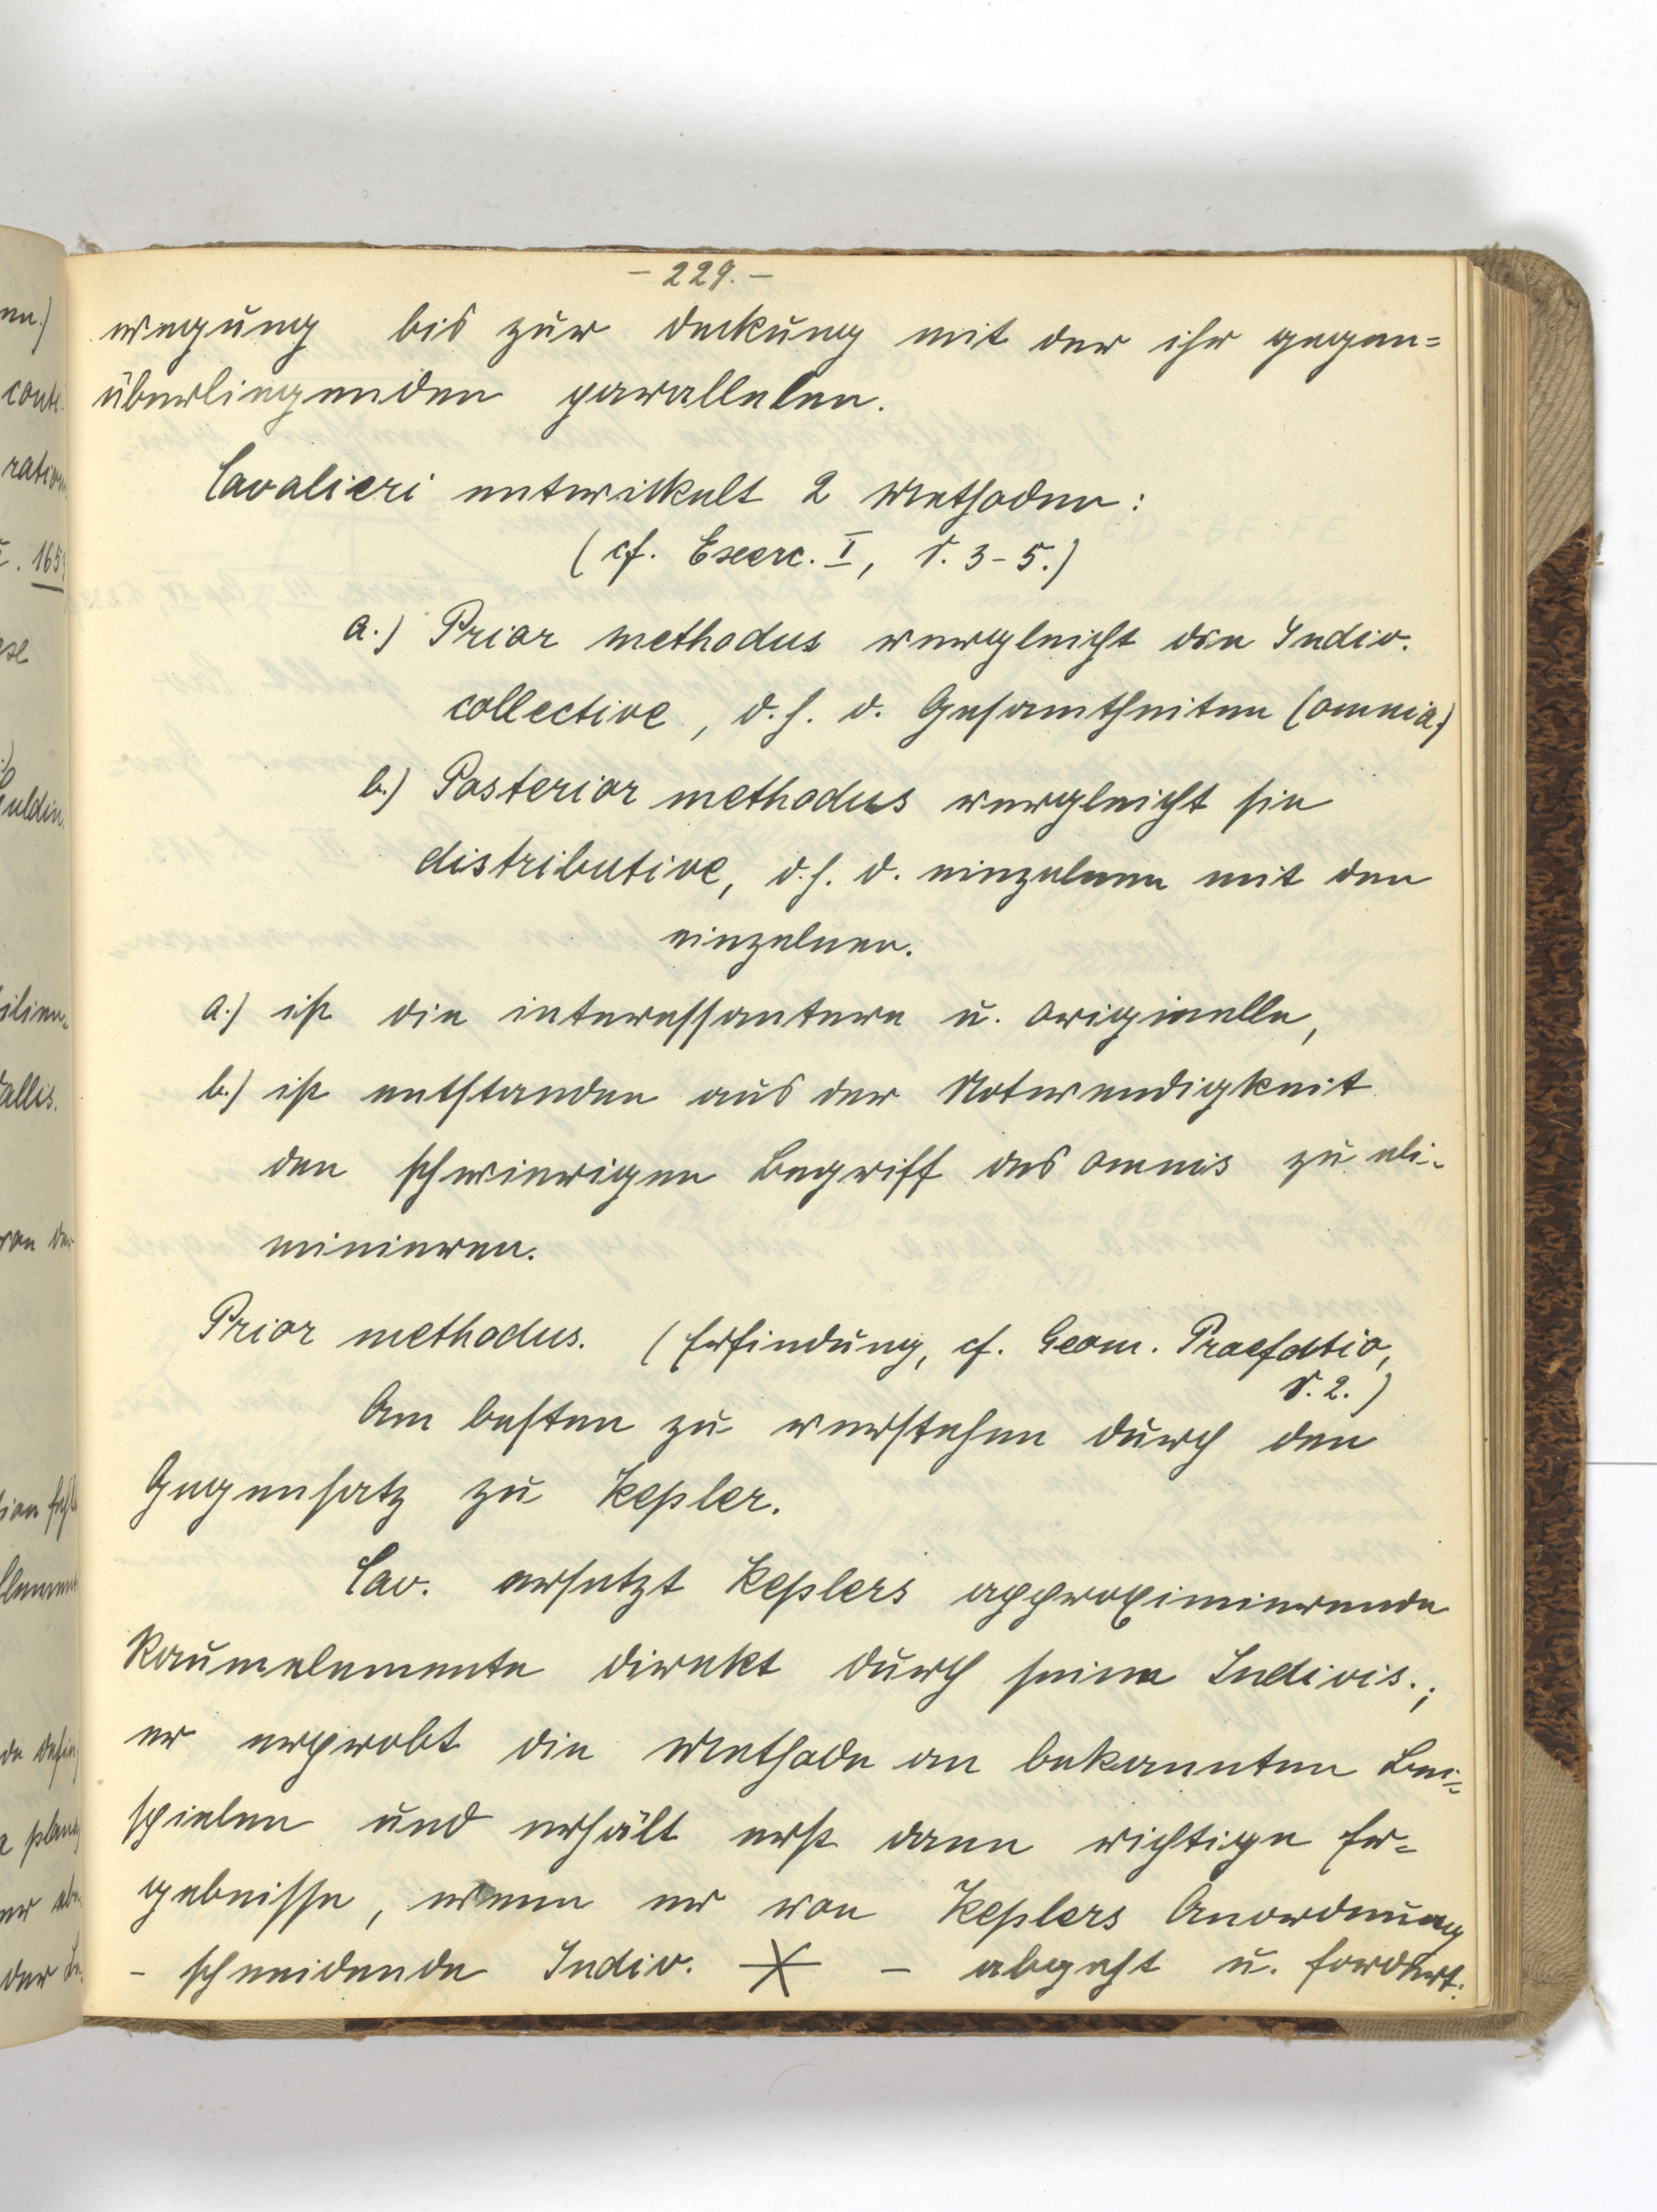 - 229. -
wegung bis zur Deckung mit der ihr gegen=
überliegenden parallelen.
Cavalieri entwickelt 2 Methoden:
(cf. Exerc. I, S. 3-5.)
a.) Prior methodus vergleicht die Indiv.
collective, d.h. d. Gesamtheiten (omnia.)
b.) Posterior methodus vergleicht sie
distributive, d.h. d. einzelnen mit den
einzelnen.
a.) ist die interessantere u. originelle,
b.) ist entstanden aus der Notwendigkeit
den schwierigen Begriff des omnis zu eli-
minieren.
Prior methodus. (Erfindung, cf. Geom. Praefatio,
S. 2.)
Am besten zu verstehen durch den
Gegensatz zu Kepler.
Cav. ersetzt Keplers approximierende
Raumelemente direkt durch seine Indivis.;
er erprobt die Methode an bekannten Bei=
spielen und erhält erst dann richtige Er=
gebnisse, wenn er von Keplers Anordnung
- schneidende Indiv. - abgeht u. fordert: